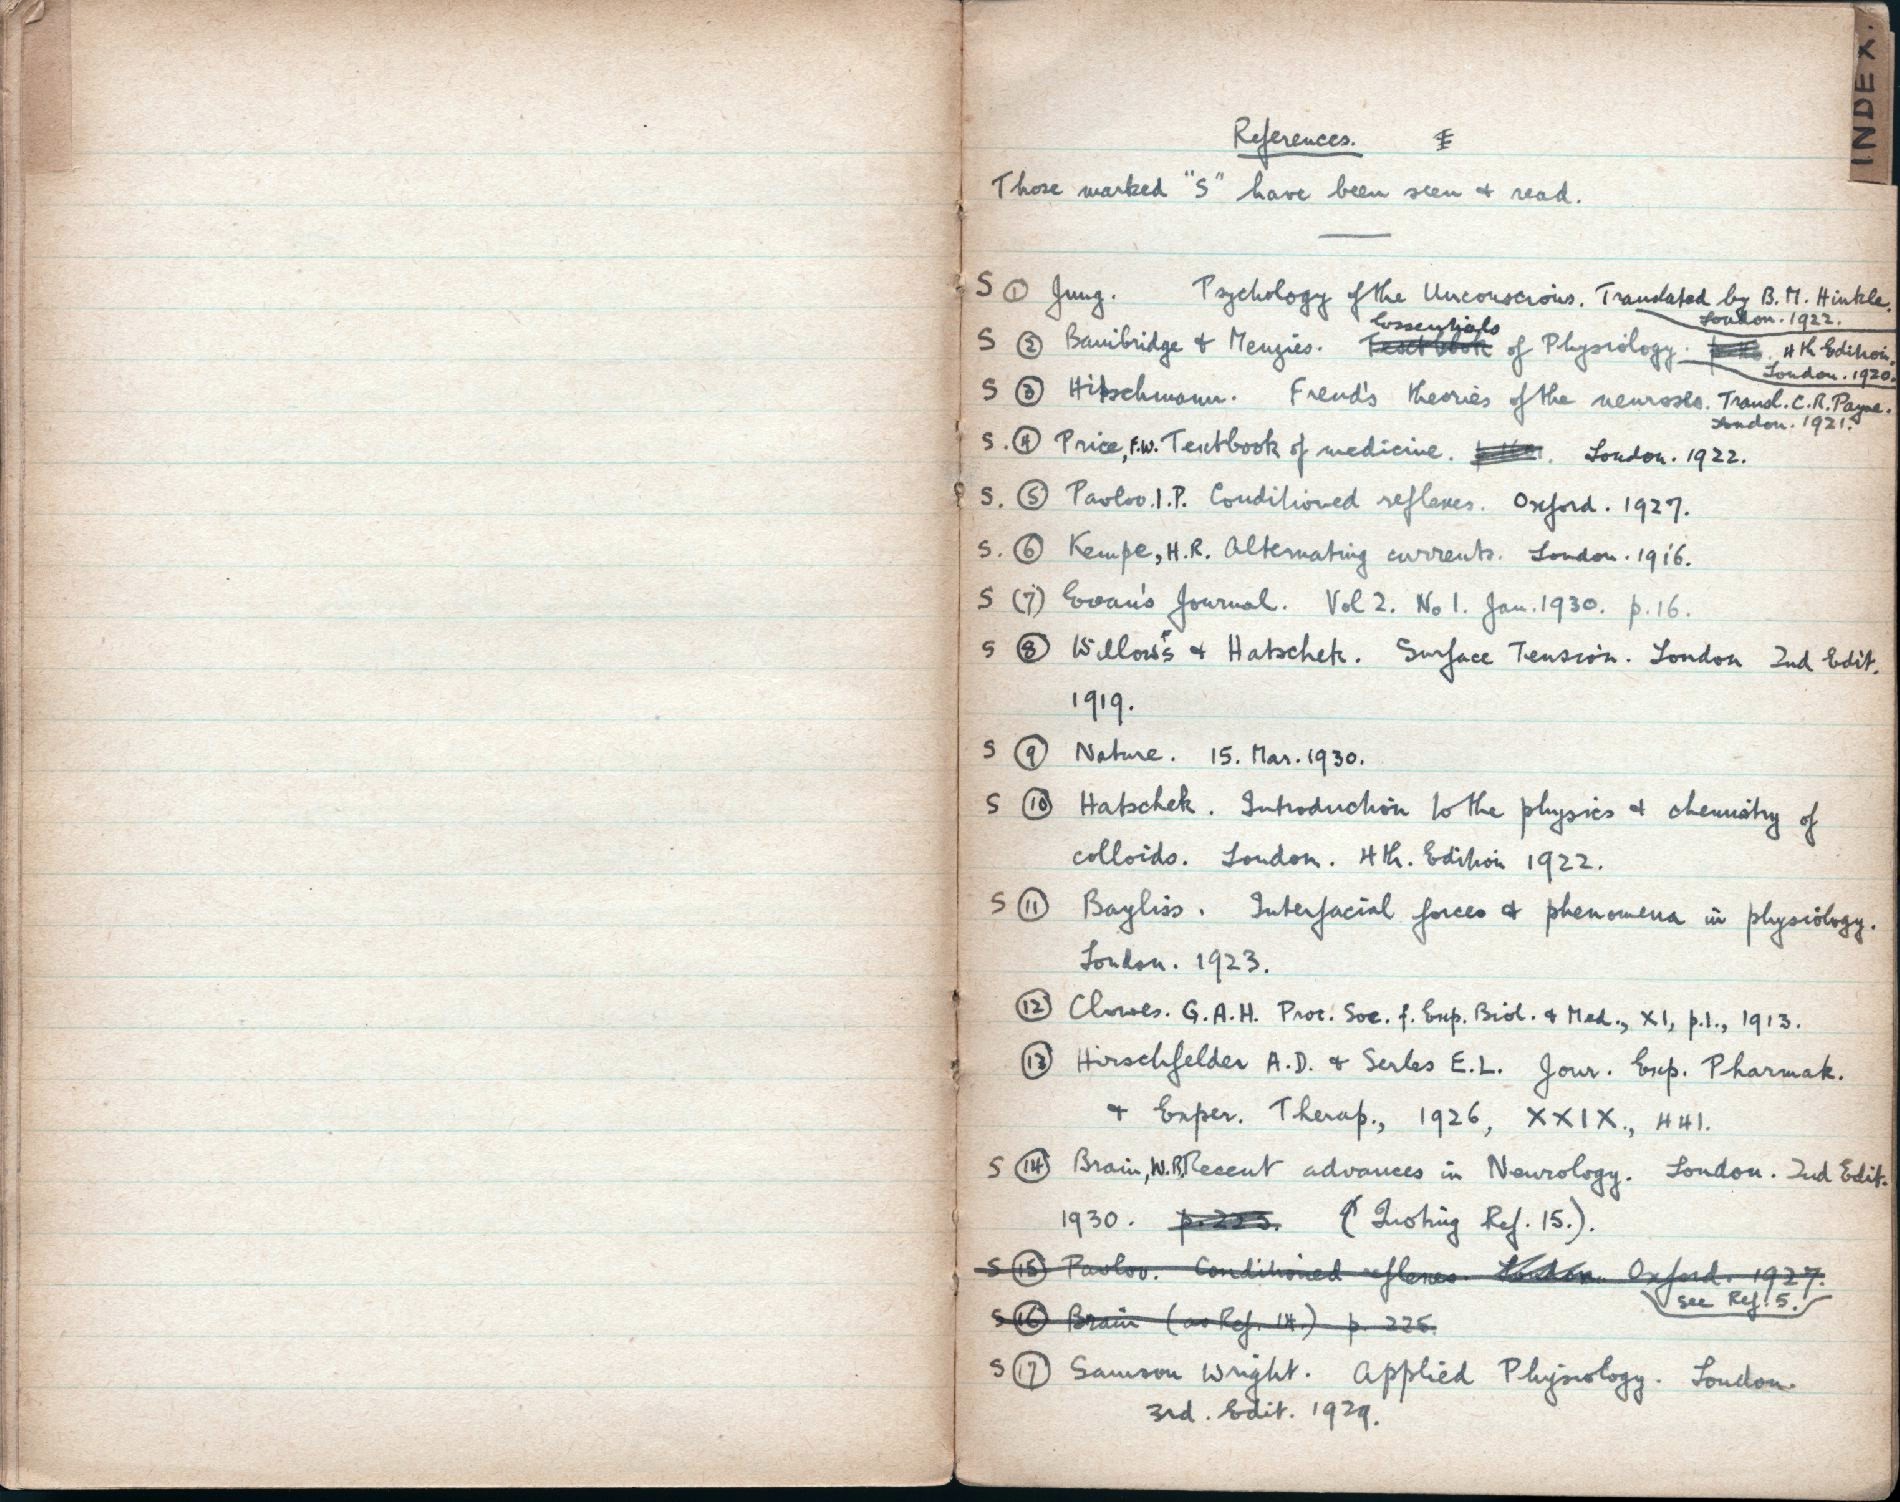 INDEX.
References.
Those marked "S" have been seen & read.
S ① Jung. Psychology of the Unconscious. Translated by B.M. Hinkle.
London. 1922.
Essentials
S ② Bainbridge & Menzies. Textbook of Physiology. 4th Edition.
London. 1920.
S ③ Hitschmann. Freud's theories of the neuroses. Transl. C.R. Payne.
London. 1921.
S. ④ Price, F.W. Textbook of medicine. London. 1922.
S. ⑤ Pavlov. I.P. Conditioned reflexes. Oxford. 1927.
S. ⑥ Kempe, H.R. Alternating currents. London. 1916.
S (7) Evan's Journal. Vol 2. No 1. Jan. 1930. p. 16.
S ⑧ Willows & Hatschek. Surface Tension. London 2nd Edit.
1919.
S ⑨ Nature. 15. Mar. 1930.
S ⑩ Hatschek. Introduction to the physics & chemistry of
colloids. London. 4th. Edition 1922.
S ⑪ Bayliss. Interfacial forces & phenomena in physiology.
London. 1923.
⑫ Clowes. G.A.H. Proc. Soc. f. Exp. Biol. & Med., XI, p.1., 1913.
⑬ Hirschfelder A.D. & Serles E.L. Jour. Exp. Pharmak.
& Exper. Therap., 1926, XXIX., 441.
S ⑭ Brain, W.R. Recent advances in Neurology. London. 2nd Edit.
1930. p. 225. (Quoting Ref. 15.).
S ⑮ Pavlov. Conditioned reflexes. London. Oxford. 1927.
see Ref. 5.
S ⑯ Brain (as Ref. 14.) p. 225.
S ⑰ Samson Wright. Applied Physiology. London.
3rd. Edit. 1929.